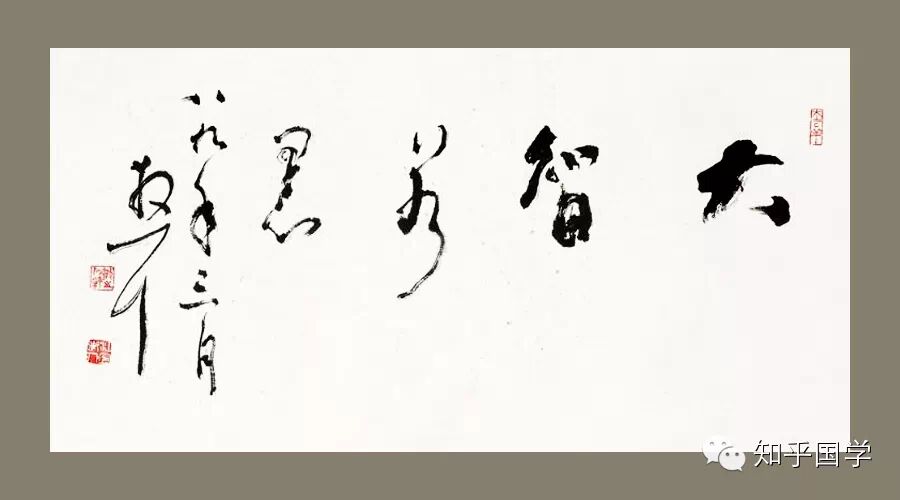 大智若愚
八九年三月
知乎国学